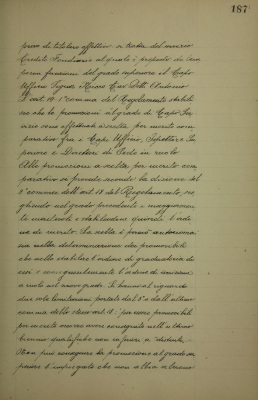 187
privo di titolare effettivo si tratta del servizio
Credito Fondiario al quale è preposto da tem
po in funzioni del grado superiore il Capo
Ufficio Signor Cav. Dott. Antonio
L'art. 18 1° comma del Regolamento stabili
sce che le promozioni al grado di Capo Ser
vizio sono effettuate a scelta per merito com
parativo fra i Capi Ufficio, Ispettori Su
periori e Direttori di Sede in ruolo
Alle promozioni a scelta per merito com
parativo si procede, secondo la dizione del
comma dell'art. del Regolamento, sce
gliendo nel grado precedente i maggiormen
te meritevoli e stabilendo quindi l'ordi
ne di merito. La scelta è perciò
sia nella determinazione dei promovibili
che nello stabilire l'ordine di graduatoria di
essi e conseguentemente l'ordine di
a ruolo nel nuovo grado. Si hanno al riguardo
due sole limitazioni portate dal 3° e dall'ultimo
comma dello stesso art. 18: per essere promovibili
per merito occorre avere conseguito nell'ultimo
biennio qualifiche non inferiori a "distinto",
Non può conseguire la promozione al grado su
periore l'impiegato che non abbia